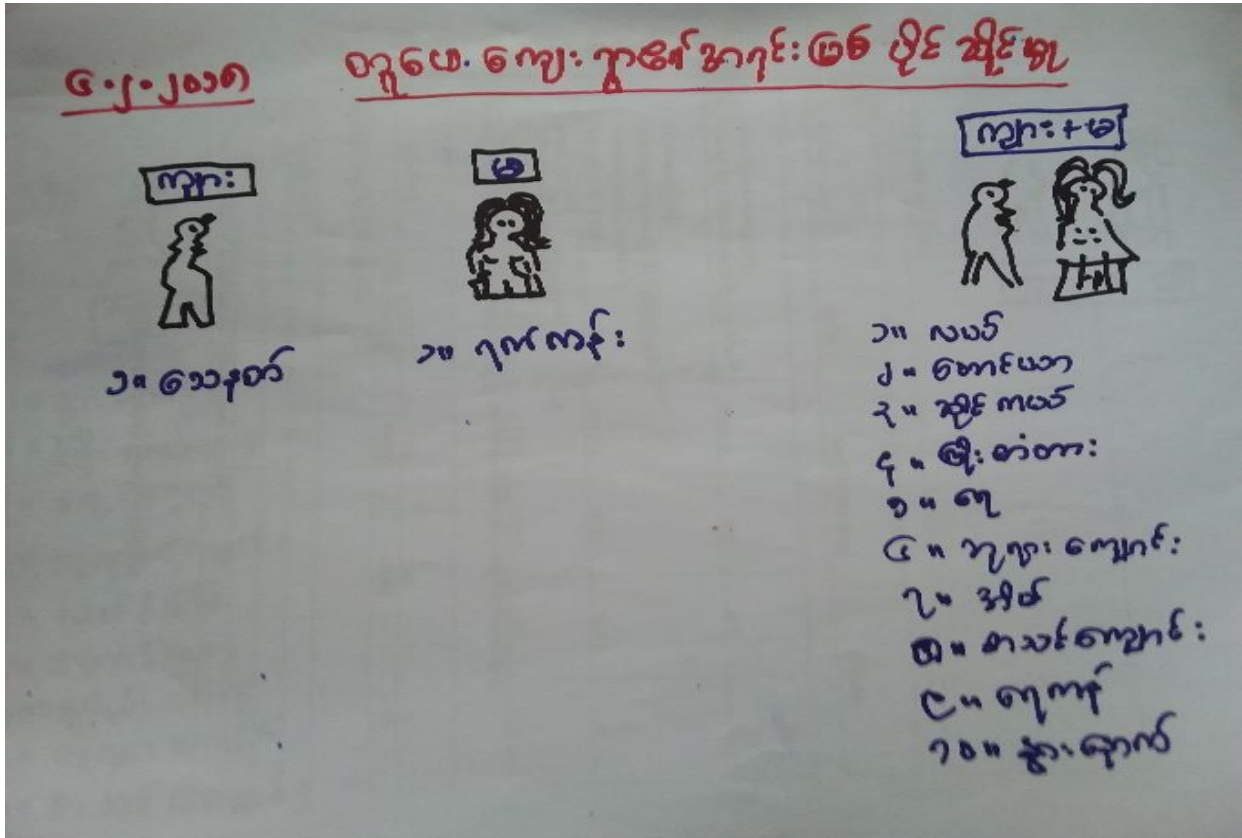 ၄.၂.၂၀၁၅
ကျေးရွာ၏ အရင်းမြစ် ပိုင်ဆိုင်မှု
ကျား
မ
ကျား+မ
၁။ သေနတ်
၁။ ရက်ကန်း
၁။ လယ်
၂။ တောင်ယာ
၃။ ဆိုင်ကယ်
၄။ ခြံ
၅။ ရေ
၆။ ဘုရားကျောင်း
၇။ အိမ်
၈။ စာသင်ကျောင်း
၉။ ရေကန်
၁၀။ နွားနောက်